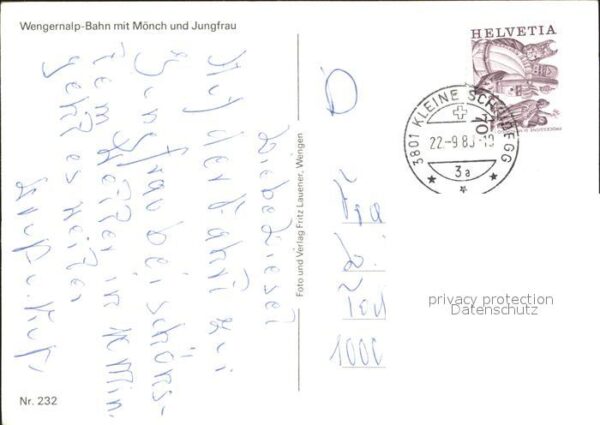 Wengernalp-Bahn mit Mönch und Jungfrau
Liebe Liesel
Auf der Fahrt zur
Jungfrau bei schöns-
tem Wetter in 10 Min.
geht es weiter
Gruß u. Kuß
Nr. 232
Foto und Verlag Fritz Lauener, Wengen
HELVETIA
3801 KLEINE SCHEIDEGG
22.-9.8
3a
70
Fra
1000
privacy protection
Datenschutz